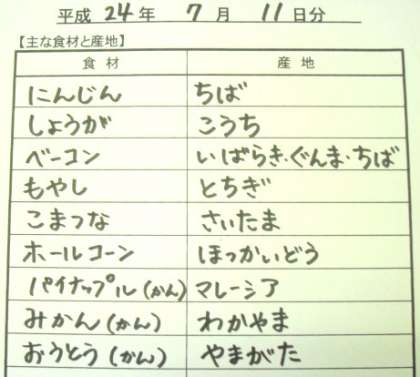 平成 24 年 7 月 11 日分
【主な食材と産地】
食材 産地
にんじん ちば
しょうが こうち
ベーコン いばらき・ぐんま・ちば
もやし とちぎ
こまつな さいたま
ホールコーン ほっかいどう
パイナップル(かん) マレーシア
みかん(かん) わかやま
おうとう(かん) やまがた